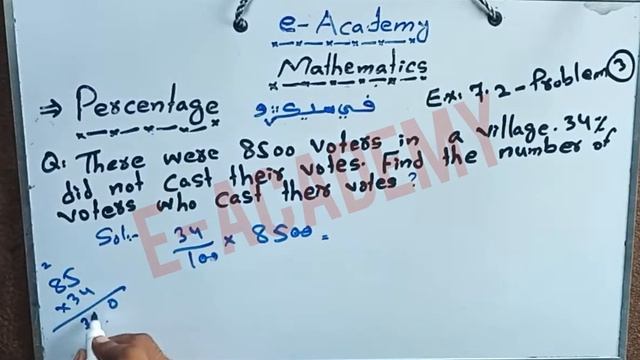 e-Academy
Mathematics
⇒ Percentage
Ex. 7.2 - Problem 3
Q: There were 8500 voters in a village. 34%
did not cast their votes. Find the number of
voters who cast their votes ?
Sol:- 34/100 × 8500 =
2
85
×34
3 0
E-ACADEMY